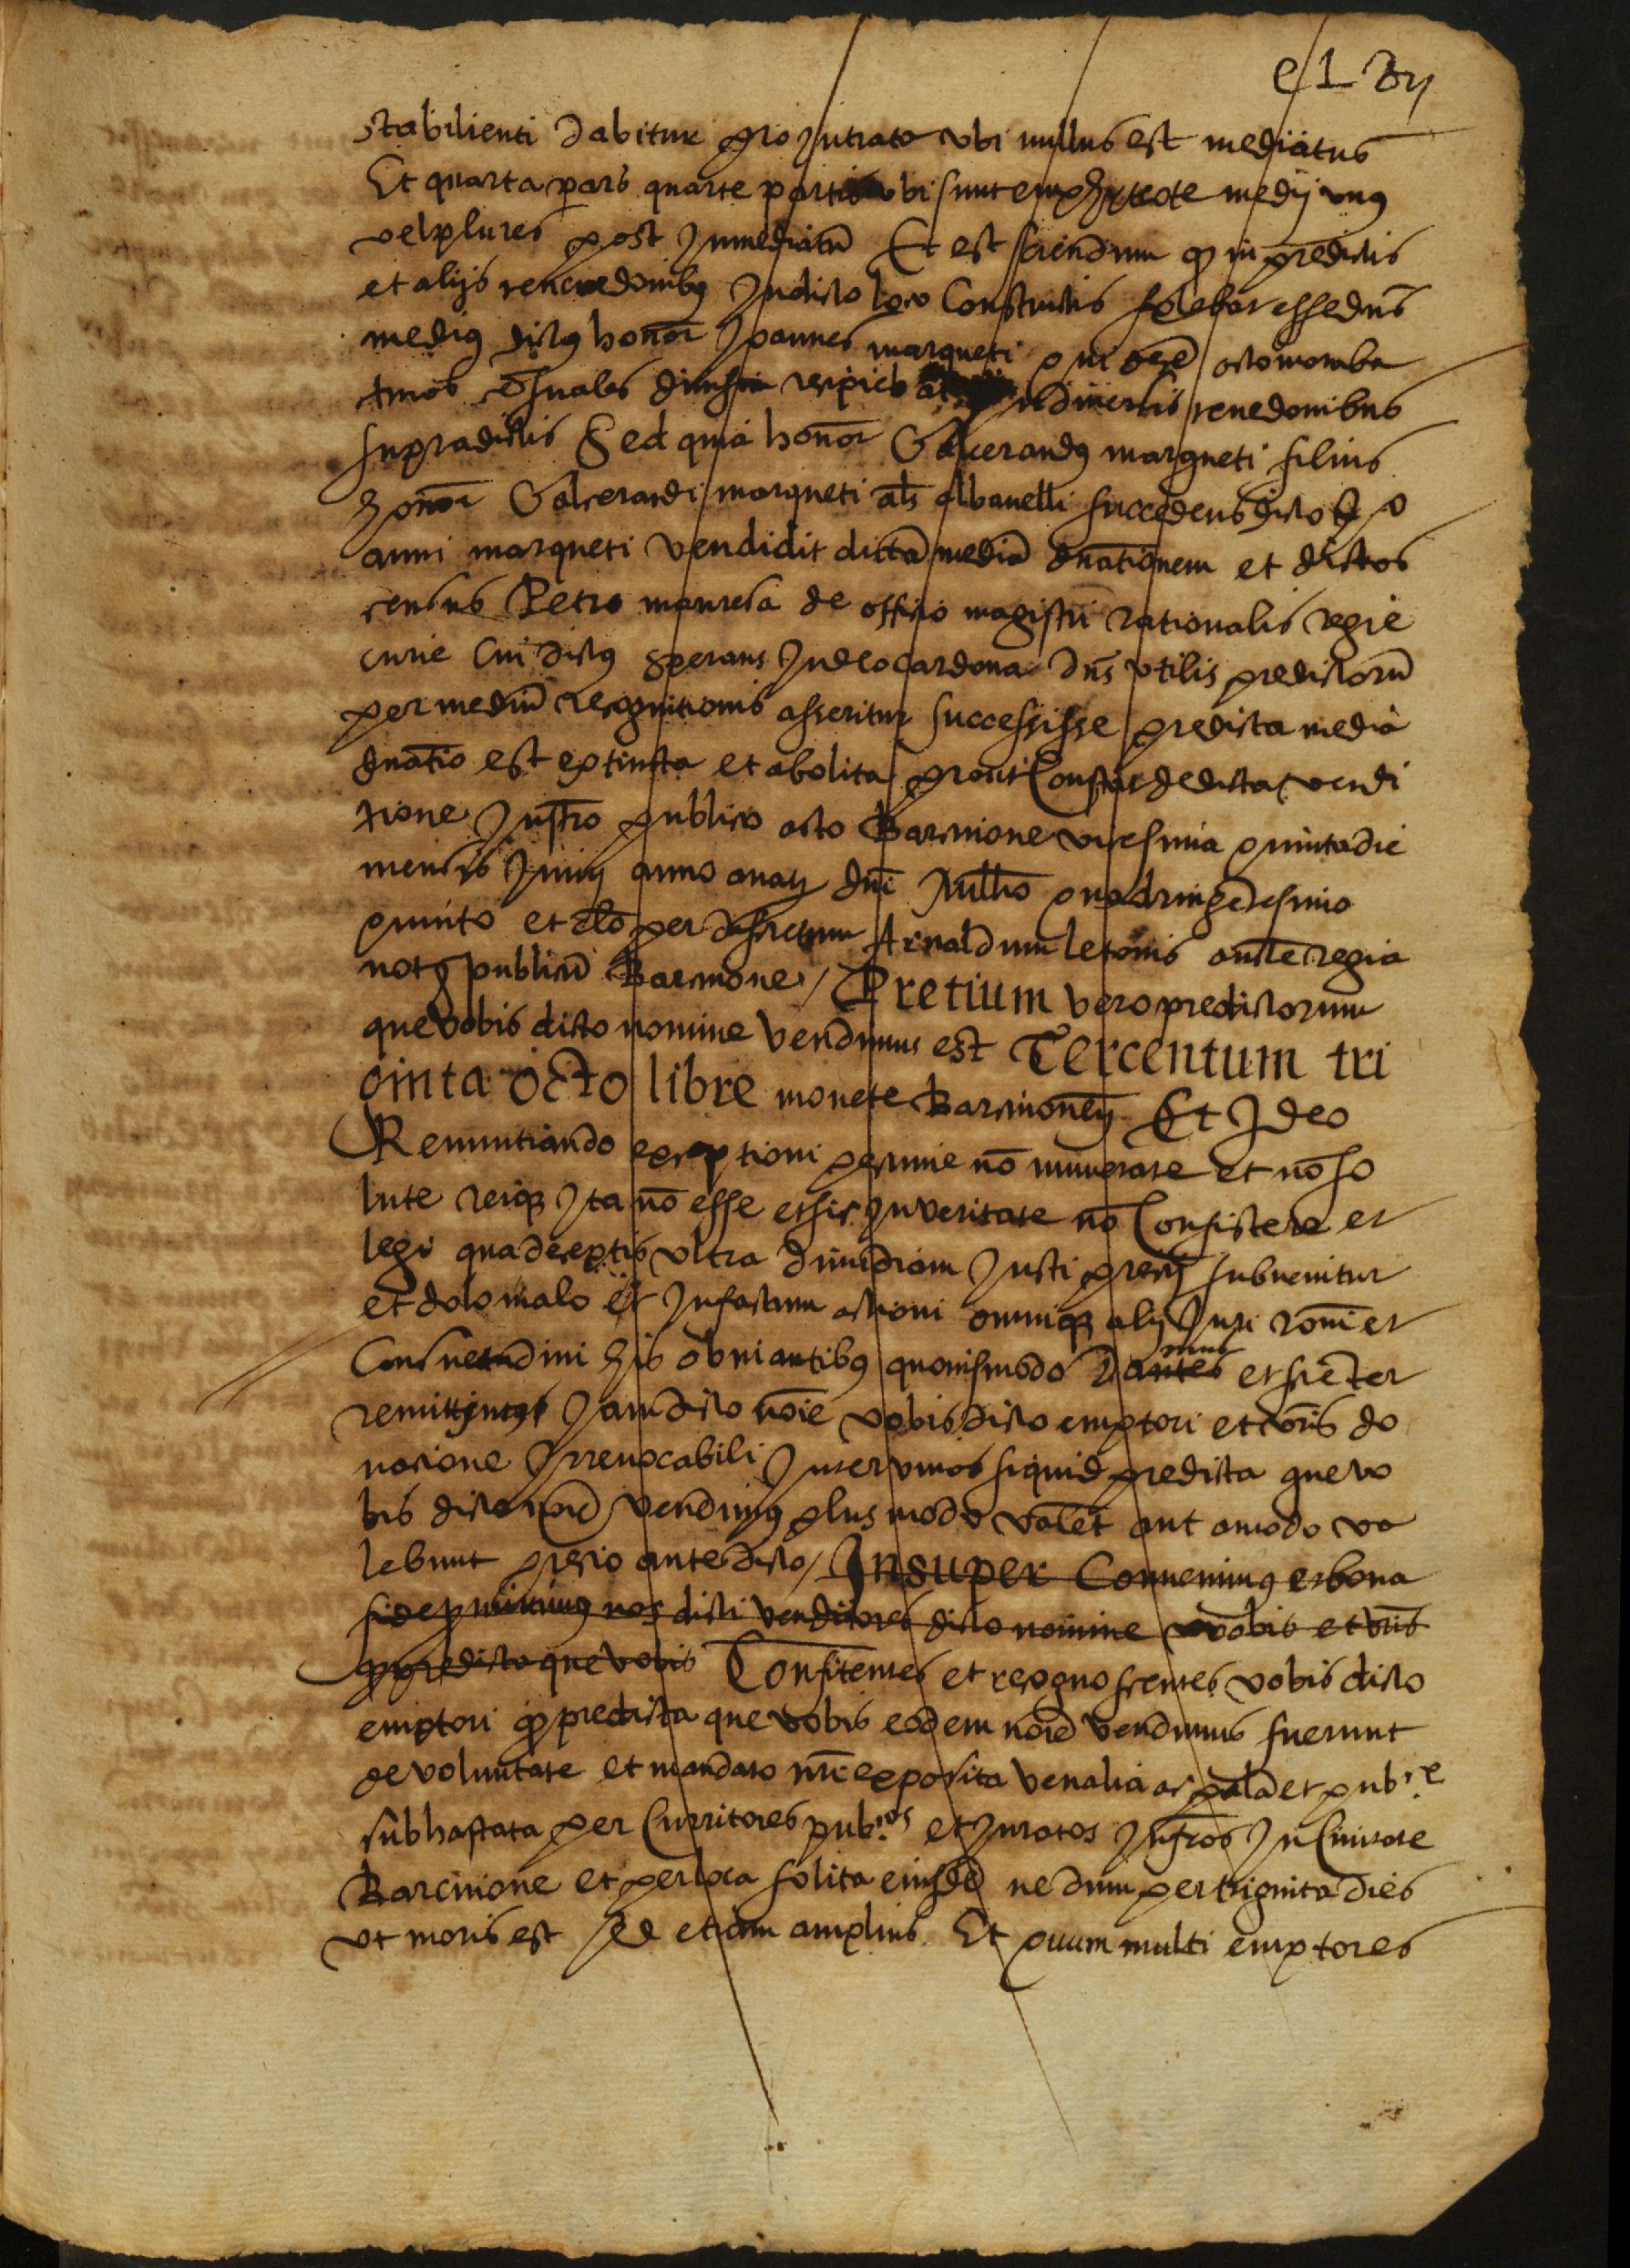 stabilienti dabitur pro Intrata vbi nullus est mediatus
Et quarta pars quarte partis vbi sunt emphiteote medij vnus
vel plures post Inmediatũ Et est sciendum q in predictis
et alijs rencuedonibus In dicto loco Constructis solebat esse dñs
medius dictus honor Ioannes marqueti qui octo moraba
tinos censuales recipieb in diuersis renedonibus
supradictis Sed quia honor Galcerandus marqueti filius
honor Galcerandi marqueti als albanelli succedens dicto Jo
anni marqueti vendidit dictã mediã dnationem et dictos
census Petro manresa de officio magistri rationalis regie
curie Cui dictus sperans Indeo cardona dñs vtilis predictorũ
per mediũ recognitionis asseritur successisse predicta media
dnatio est extincta et abolita prout Constat de dicta vendi
tione Instro publico acto Barcinone vicesima quinta die
mensis Junij anno a naty dñi Millo quadringẽtesimo
quinto et clo per discretum Arnaldum letonis aucte regia
notm publicũ Barcinone / Pretium vero predictorum
que vobis dicto nomine vendimus est Tercentum tri
ginta octo libre monete Barcinoneñ Et Ideo
Renuntiando exceptioni pecunie nõ numerate et nõ so
lute reiq Ita nõ esse et sic In veritate nõ Consistere et
legi qua deceptis vltra dimidiam Justi precij subuenitur
et dolo malo et In factum actioni omniq alij Juri rõni et
Consuetudini his obuiantibus quouismodo Dantes mus et scienter
remittimus Jamdicto noie vobis dicto emptori et vris do
nacione Irreuocabili Inter viuos siquid predicta que vo
bis dicto noie vendimus plus modo valẽt aut amodo va
lebunt precio antedicto / Insuper Conuenimus et bona
fide promittimus nos dicti venditores dicto nomine vobis et vris
q predicta que vobis Confitentes et recognoscentes vobis dicto
emptori q predicta que vobis eodem noie vendimus fuerunt
de voluntate et mandato nrĩ exposita venalia ac palã et pub.ce
subhastata per Curritores pub.cos et Juratos Infros In Ciuitate
Barcinione et per loca solita eiusdẽ nedum per triginta dies
vt moris est sed etiam amplius Et quum multi emptores